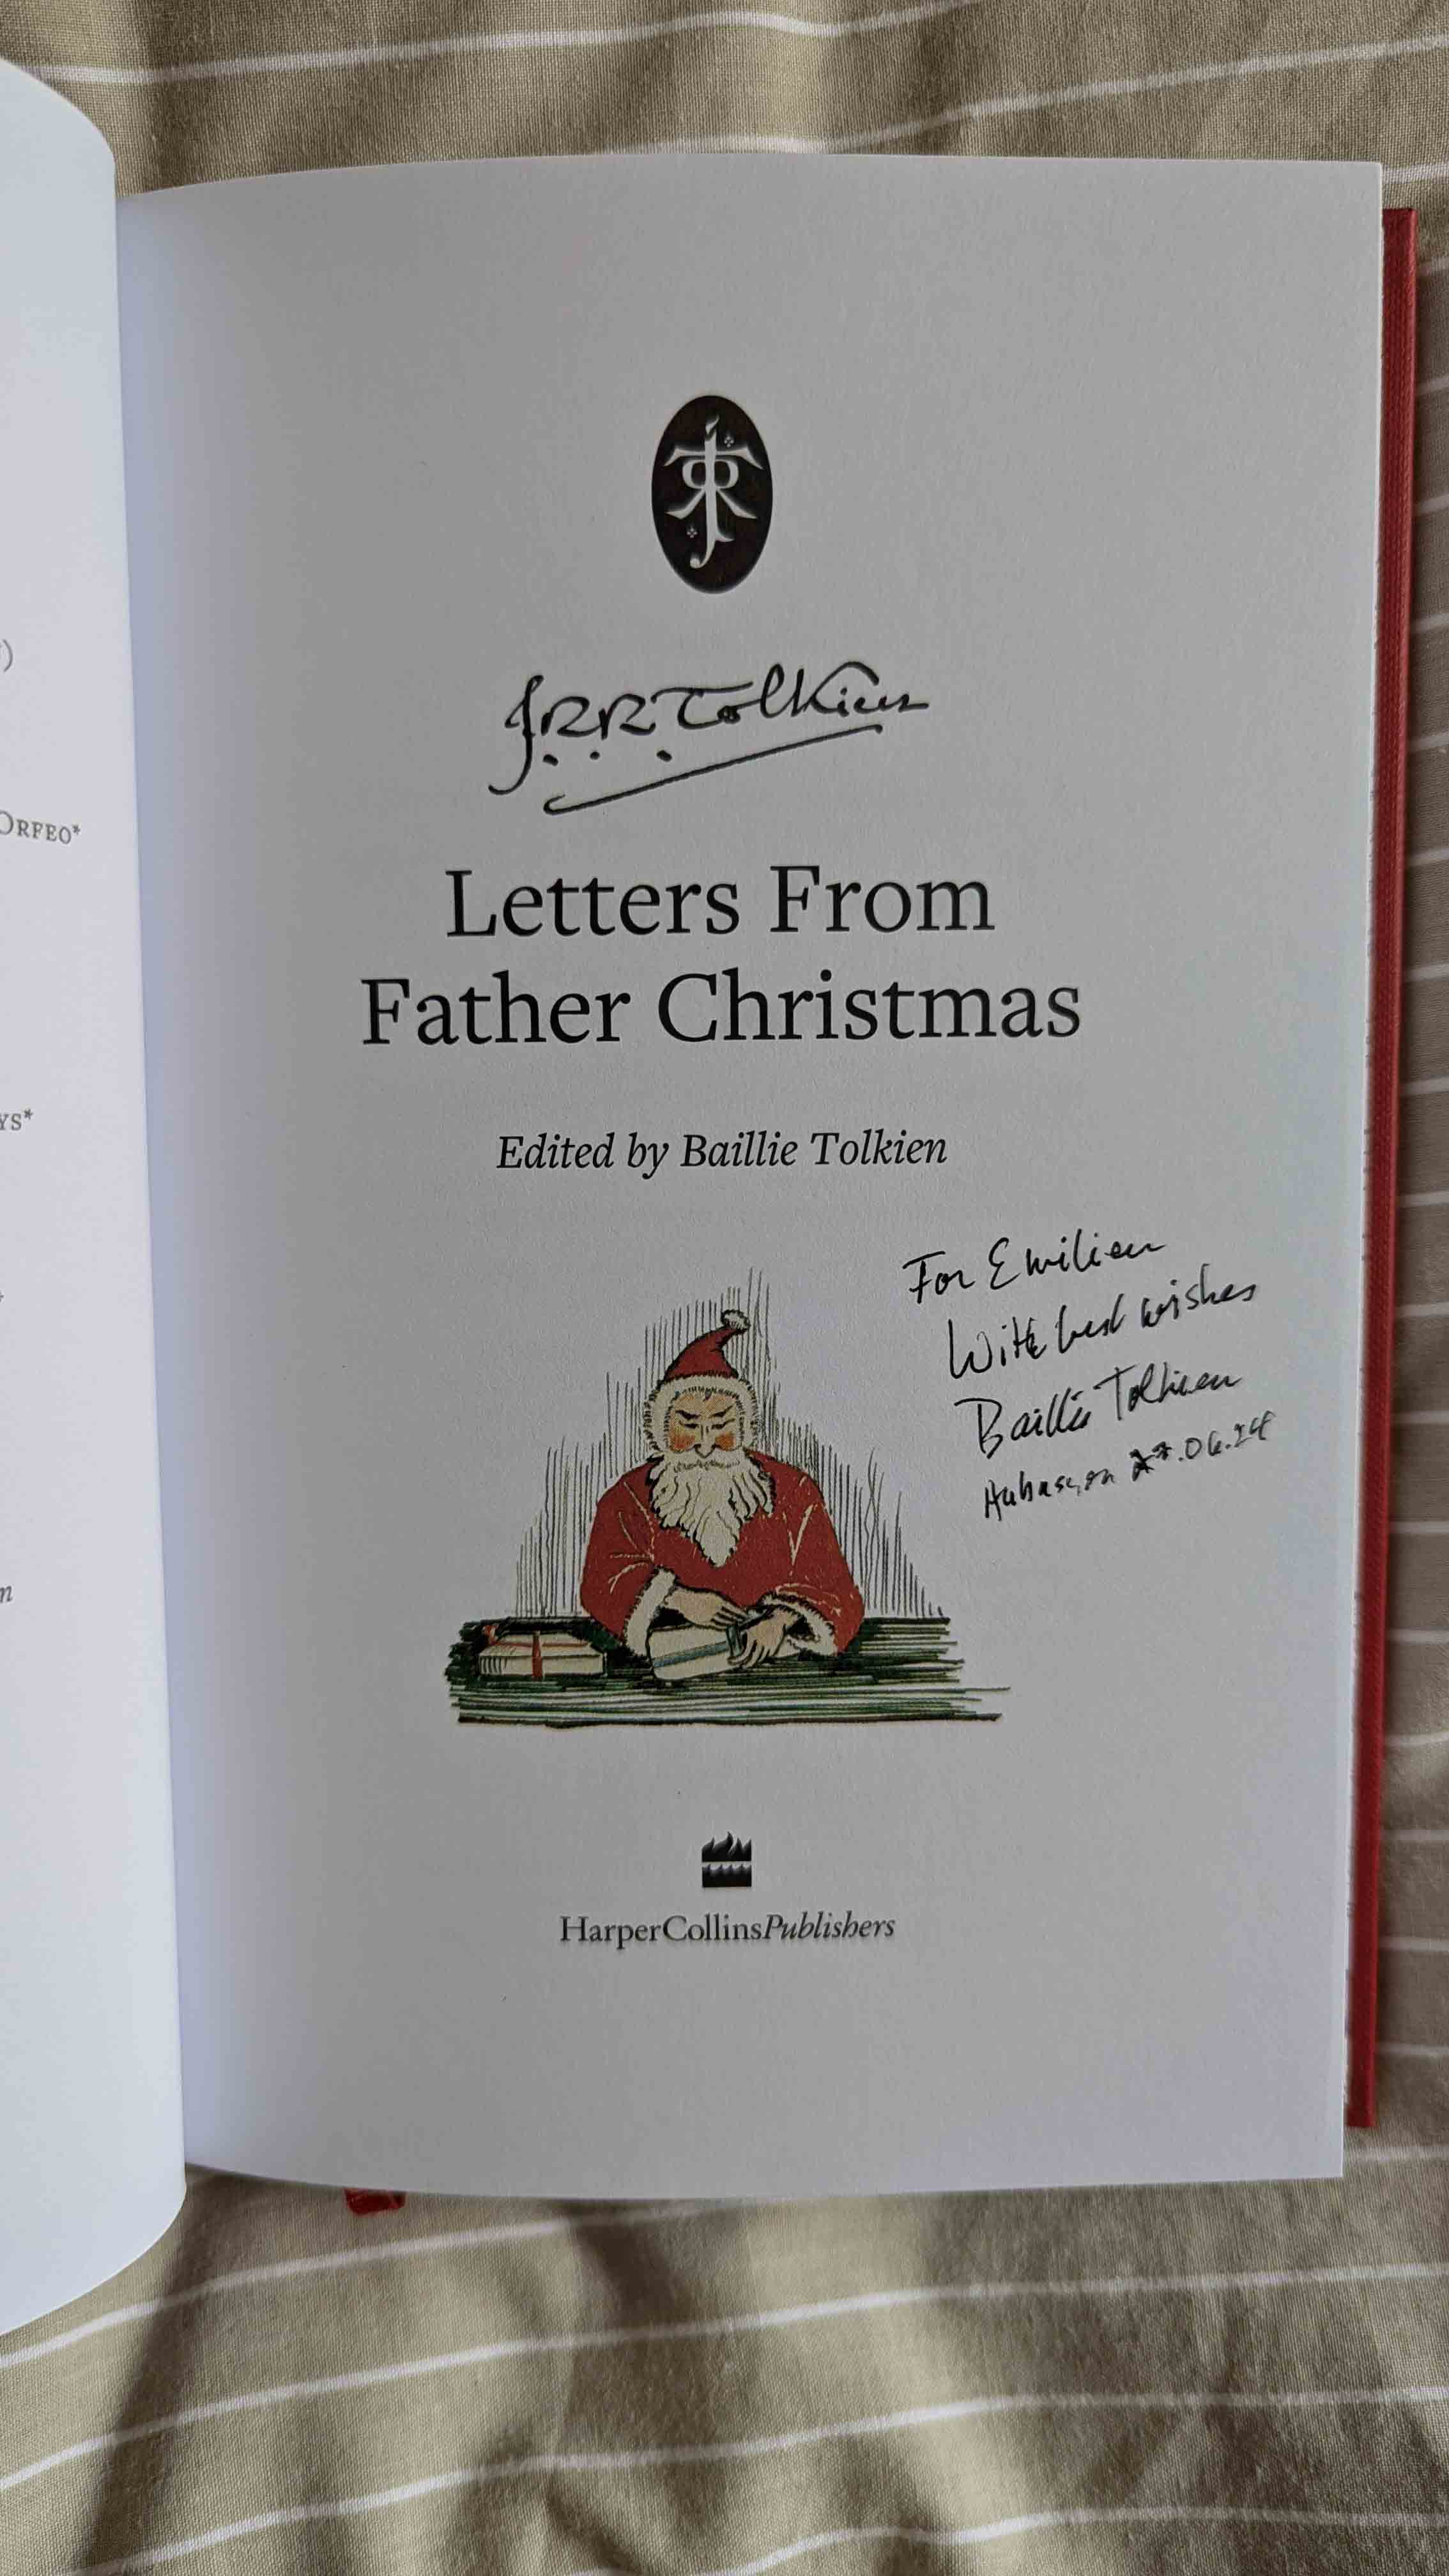 )
ORFEO*
YS*
n
J.R.R. Tolkien
Letters From
Father Christmas
Edited by Baillie Tolkien
For Emilien
With best wishes
Baillie Tolkien
Aubusson
HarperCollinsPublishers